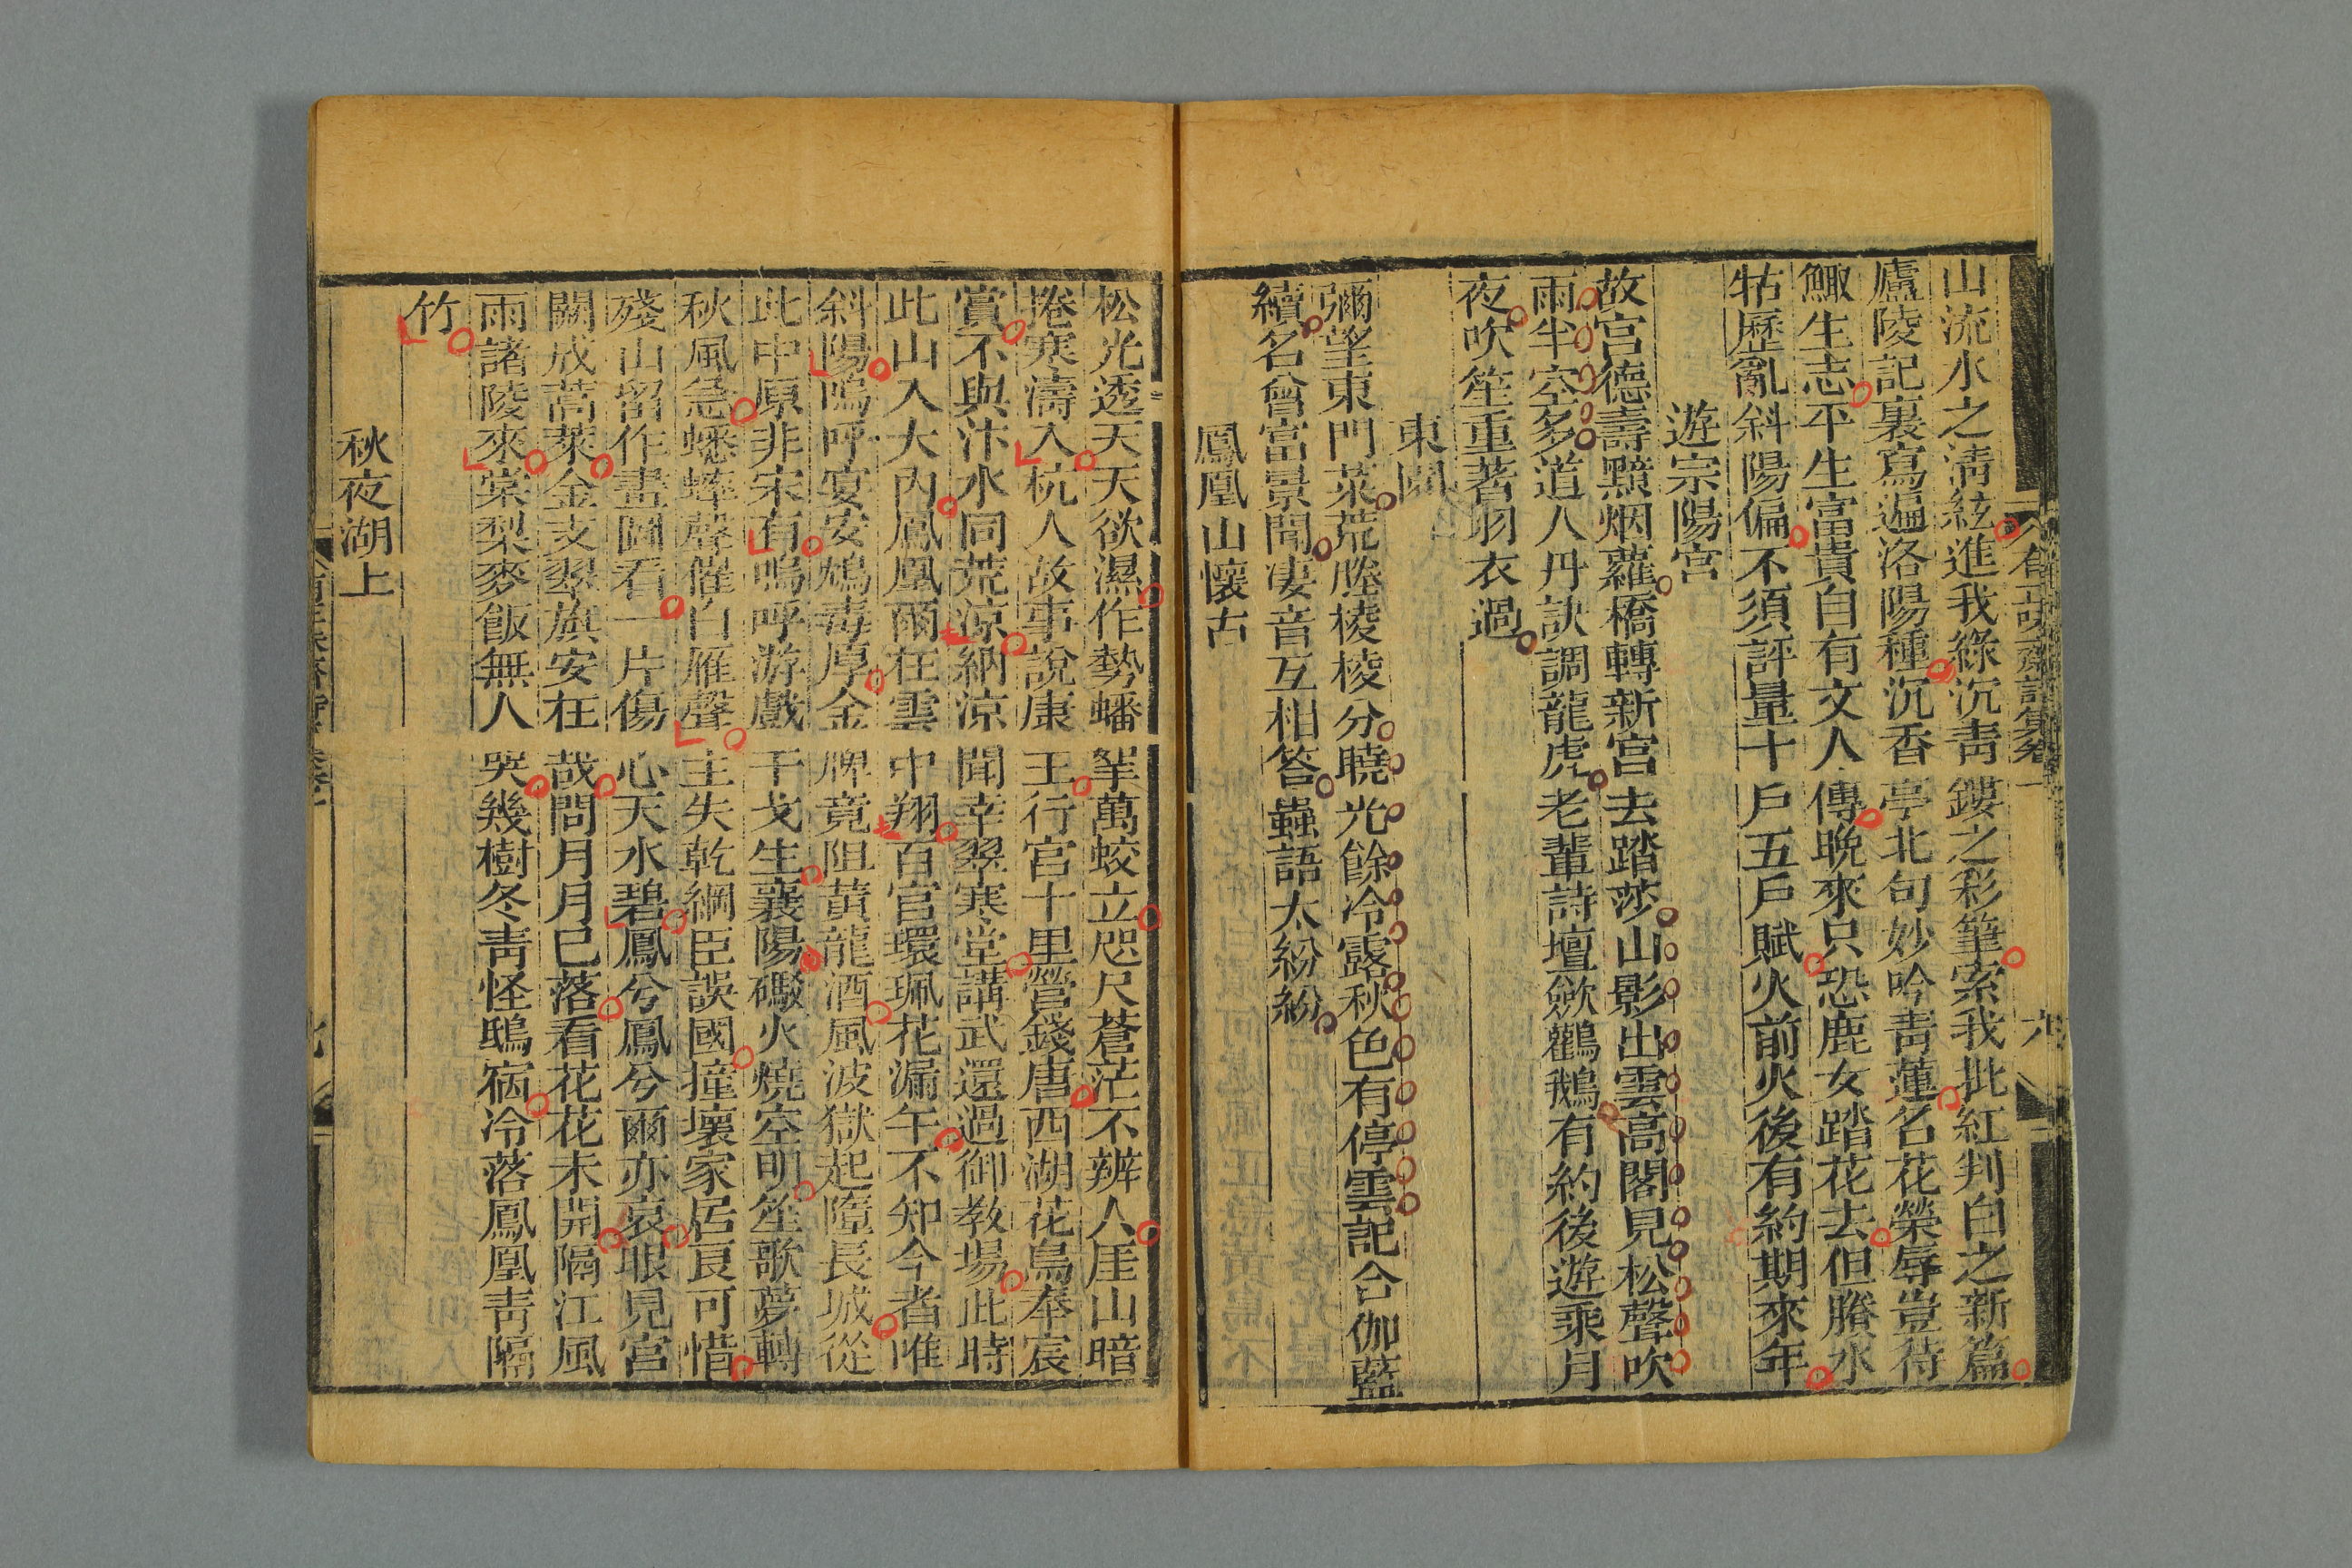 山流水之淸絃進我綠沉靑鏤之彩筆索我批紅判白之新篇
廬陵記裏寫遍洛陽種沉香亭北句妙吟靑蓮名花榮辱豈待
鯫生志平生富貴自有文人傳晚來只恐鹿女踏花去但賸水
牯歷亂斜陽偏不須評量十戶五戶賦火前火後有約期來年
遊宗陽宮
故宮德壽黯烟蘿橋轉新宮去踏莎山影出雲高閣見松聲吹
雨半空多道人丹訣調龍虎老輩詩壇歛鸛鵝有約後遊乘月
夜吹笙重著羽衣過
東園
彌望東門菜荒塍棱棱分曉光餘冷露秋色有停雲記合伽藍
續名曾富景聞淒音互相答蟲語太紛紛
鳳凰山懷古
松光透天天欲濕作勢蟠拏萬蛟立咫尺蒼茫不辨人厓山暗
捲寒濤入杭人故事說康王行宮十里營錢唐西湖花鳥奉宸
賞不與汴水同荒涼納涼聞幸翠寒堂講武還過御教場此時
此山入大內鳳凰爾在雲中翔百官環珮花漏午不知今者唯
斜陽嗚呼宴安鴆毒厚金牌竟阻黃龍酒風波獄起隳長城從
此中原非宋有嗚呼游戲干戈生襄陽礮火燒空明笙歌夢轉
秋風急蟋蟀聲催白雁聲主失乾綱臣誤國撞壞家居良可惜
殘山留作畫圖看一片傷心天水碧鳳兮鳳兮爾亦哀眼見宮
闕成蒿萊金支翠旗安在哉問月月已落看花花未開隔江風
雨諸陵來棠梨麥飯無人哭幾樹冬靑怪鴟宿冷落鳳凰靑隔
竹
秋夜湖上